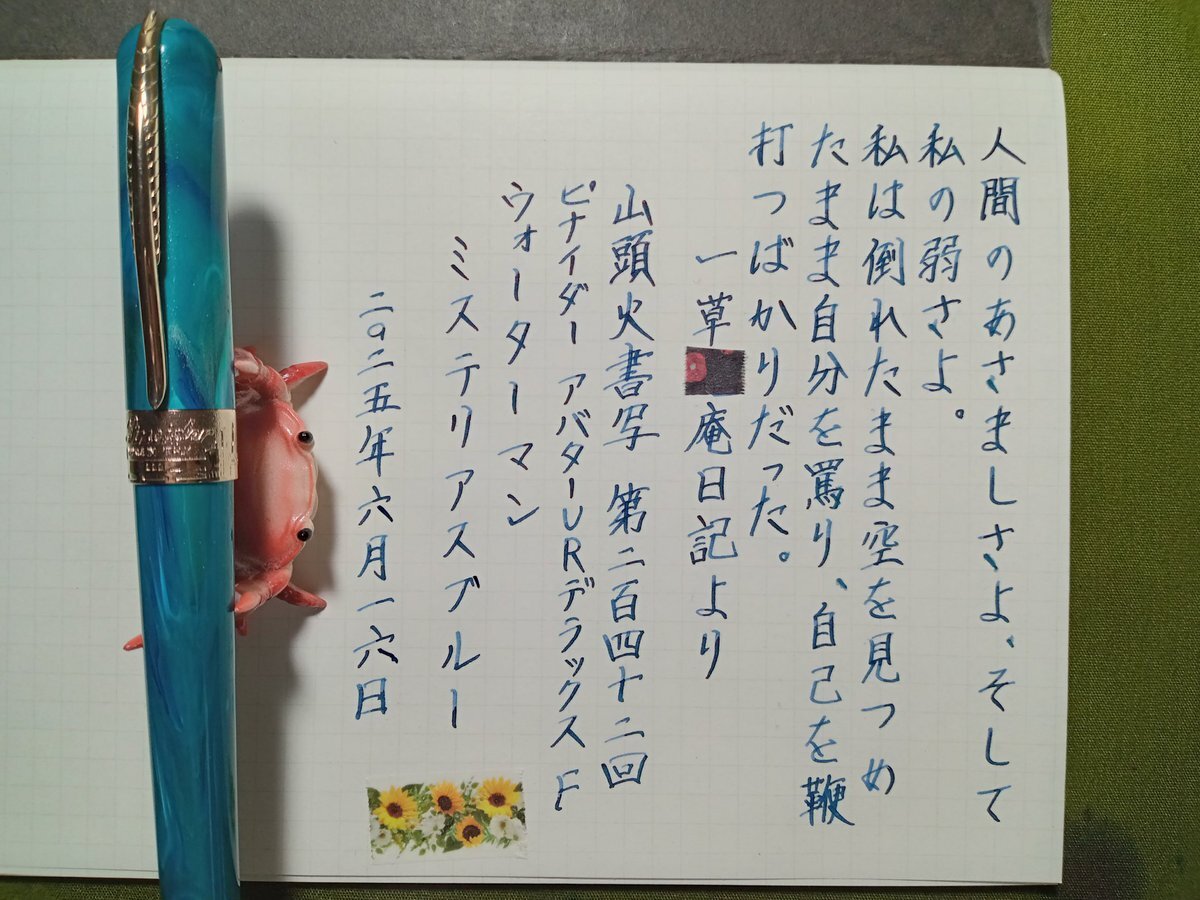 人間のあさましさよ、そして
私の弱さよ。
私は倒れたまま空を見つめ
たまま自分を罵り、自己を鞭
打つばかりだった。
一草庵日記より
山頭火書写 第二百四十二回
ピナイダー アバターURデラックス F
ウォーターマン
ミステリアスブルー
二〇二五年六月一六日